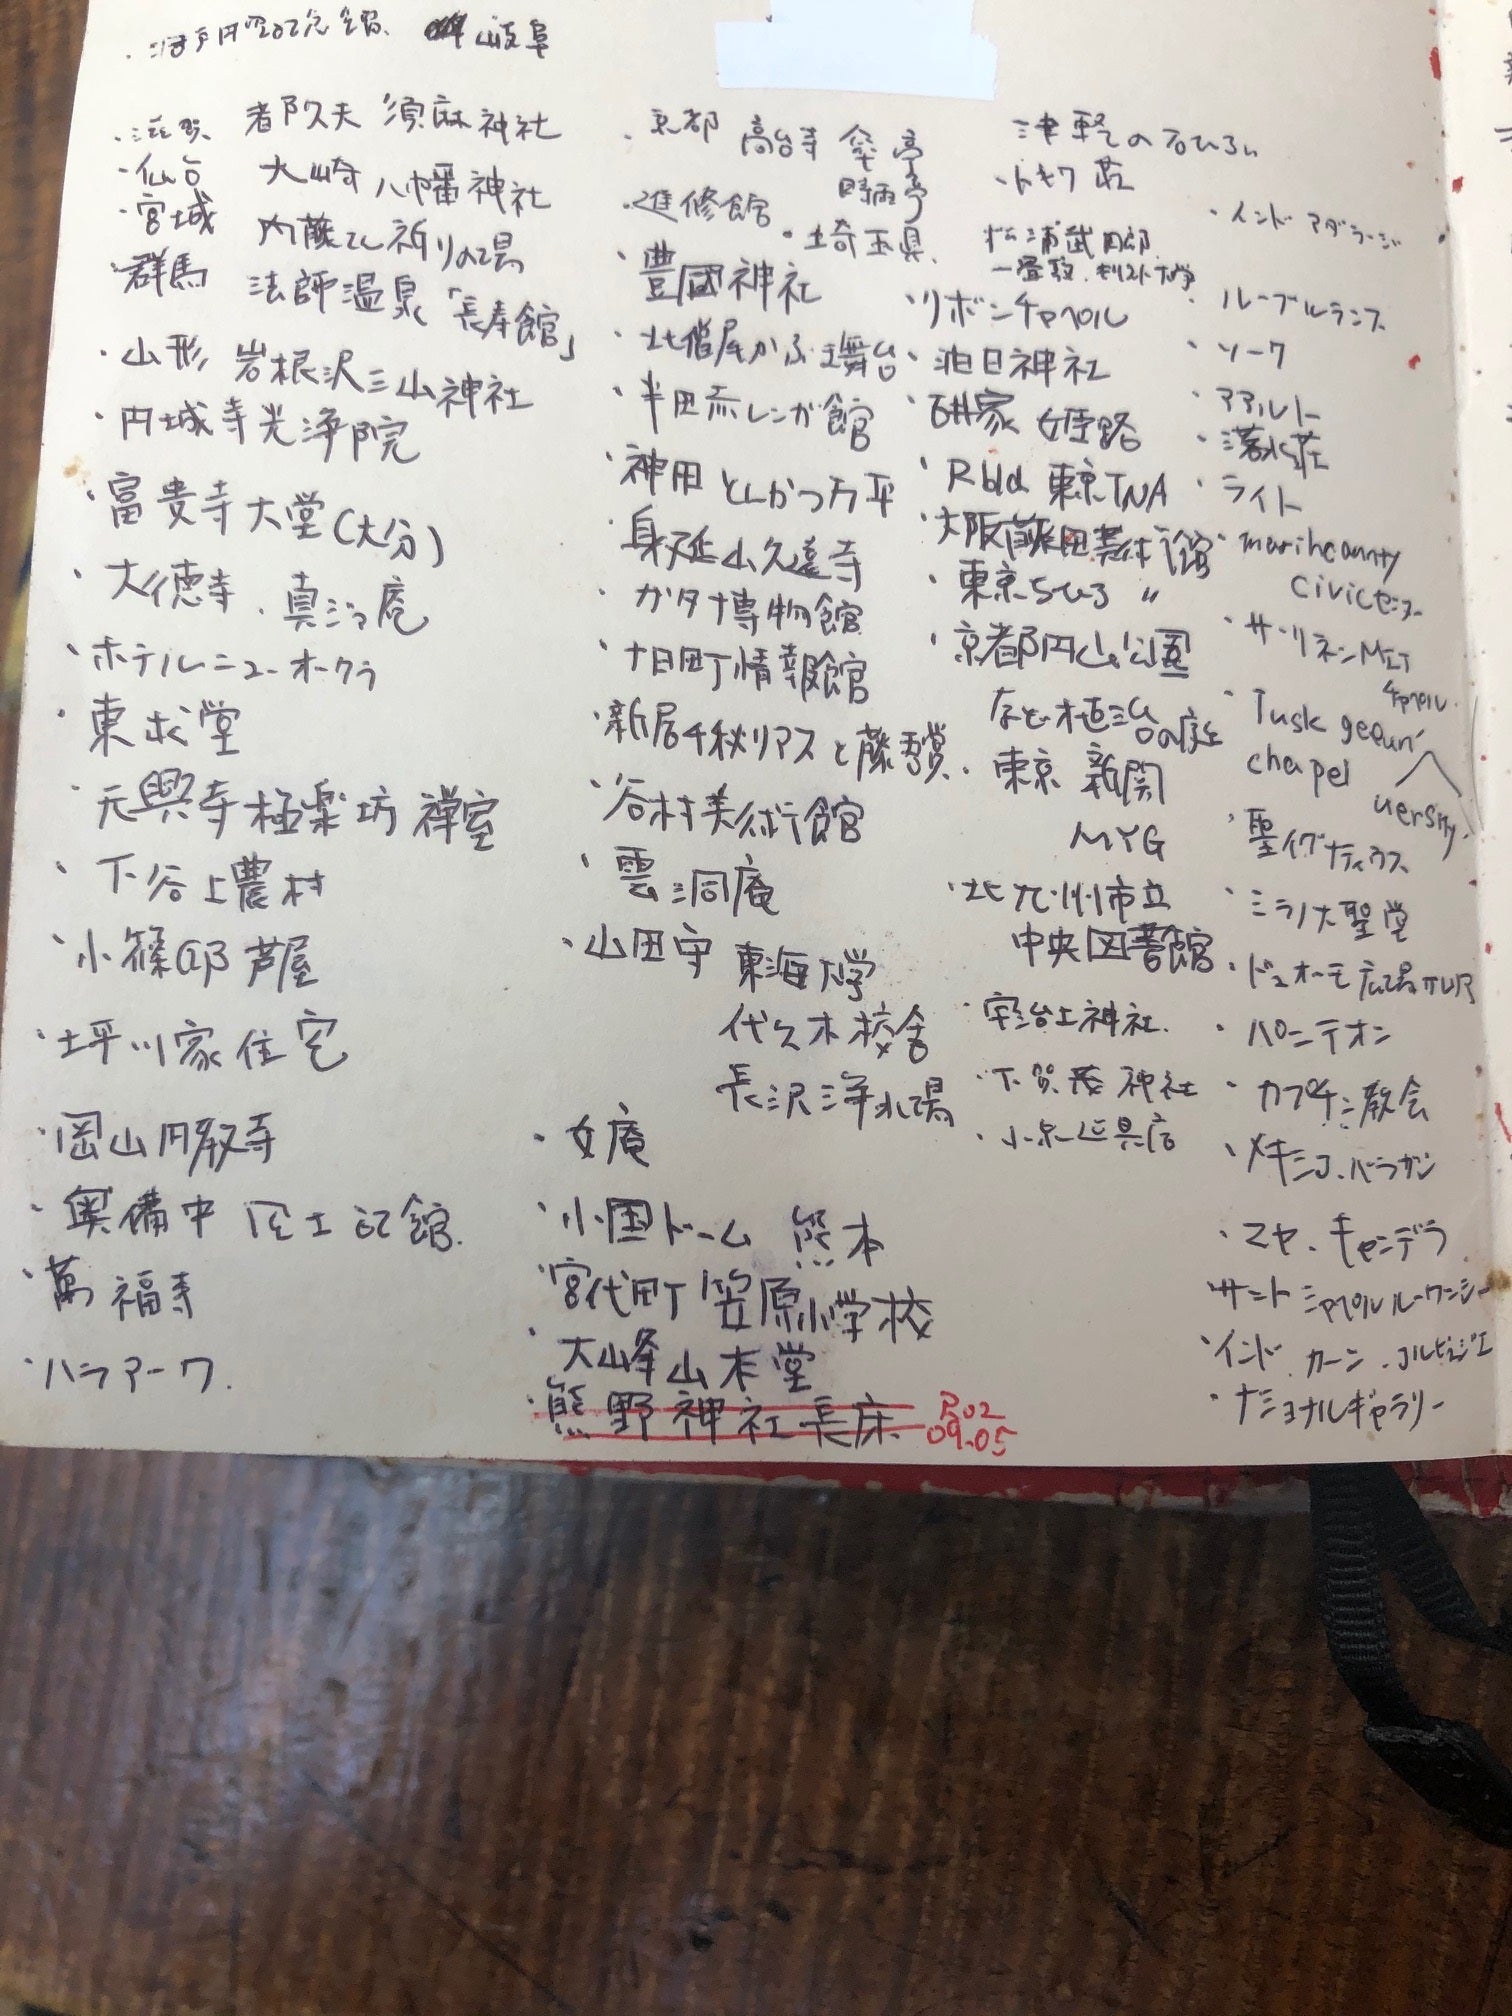 岐阜
・滋賀 都久夫須麻神社
・仙台 大崎八幡神社
・宮城 内藤てい 祈りの場
・群馬 法師温泉「長寿館」
・山形 岩根沢三山神社
・円城寺光浄院
・富貴寺大堂(大分)
・大徳寺・真ジュ庵
・ホテルニューオークラ
・東求堂
・元興寺極楽坊 禅室
・下谷上農村
・小篠邸 芦屋
・坪川家住宅
・岡山円教寺
・奥備中 風土記館
・萬福寺
・ハラアーク
・京都 高台寺 傘亭
時雨亭
・進修館・埼玉県
・豊國神社
・北僧尾かぶき舞台
・半田赤レンガ館
・神田 とんかつ万平
・身延山久遠寺
・ガタナ博物館
・十日町情報館
・新居千秋リアスと
・谷村美術館
・雲洞庵
・山田守 東海大学
代々木校舎
長沢浄水場
・女庵
・小国ドーム 熊本
・宮代町 笠原小学校
・大峰山本堂
・熊野神社長床 R02
09.05
津軽の石ひろい
・トキワ荘
松浦武四郎
一畳敷・キリスト大学
・リボンチャペル
・泊日神社
・古井家 姫路
・Rbld 東京TNA
・大阪藤田美術館
・東京ちひろ 〃
・京都円山公園
など植治の庭
・東京 新関
MYG
・北九州市立
中央図書館
・宇治上神社
・下賀茂神社
・インド マダラージ
・ルーブルランス
・ソーク
・アアルト
・落水荘
・ライト
・marincounty
civicセンター
・サーリネンMIT
チャペル
・Tuskgeeuni
chapel
versity
・聖イグナティウス
・ミラノ大聖堂
・ドゥオーモ広場
・パンテオン
・カプチン教会
・メキシコ・バラガン
・マヤ・キャンデラ
・インド・カーン・コルビュジエ
・ナショナルギャラリー